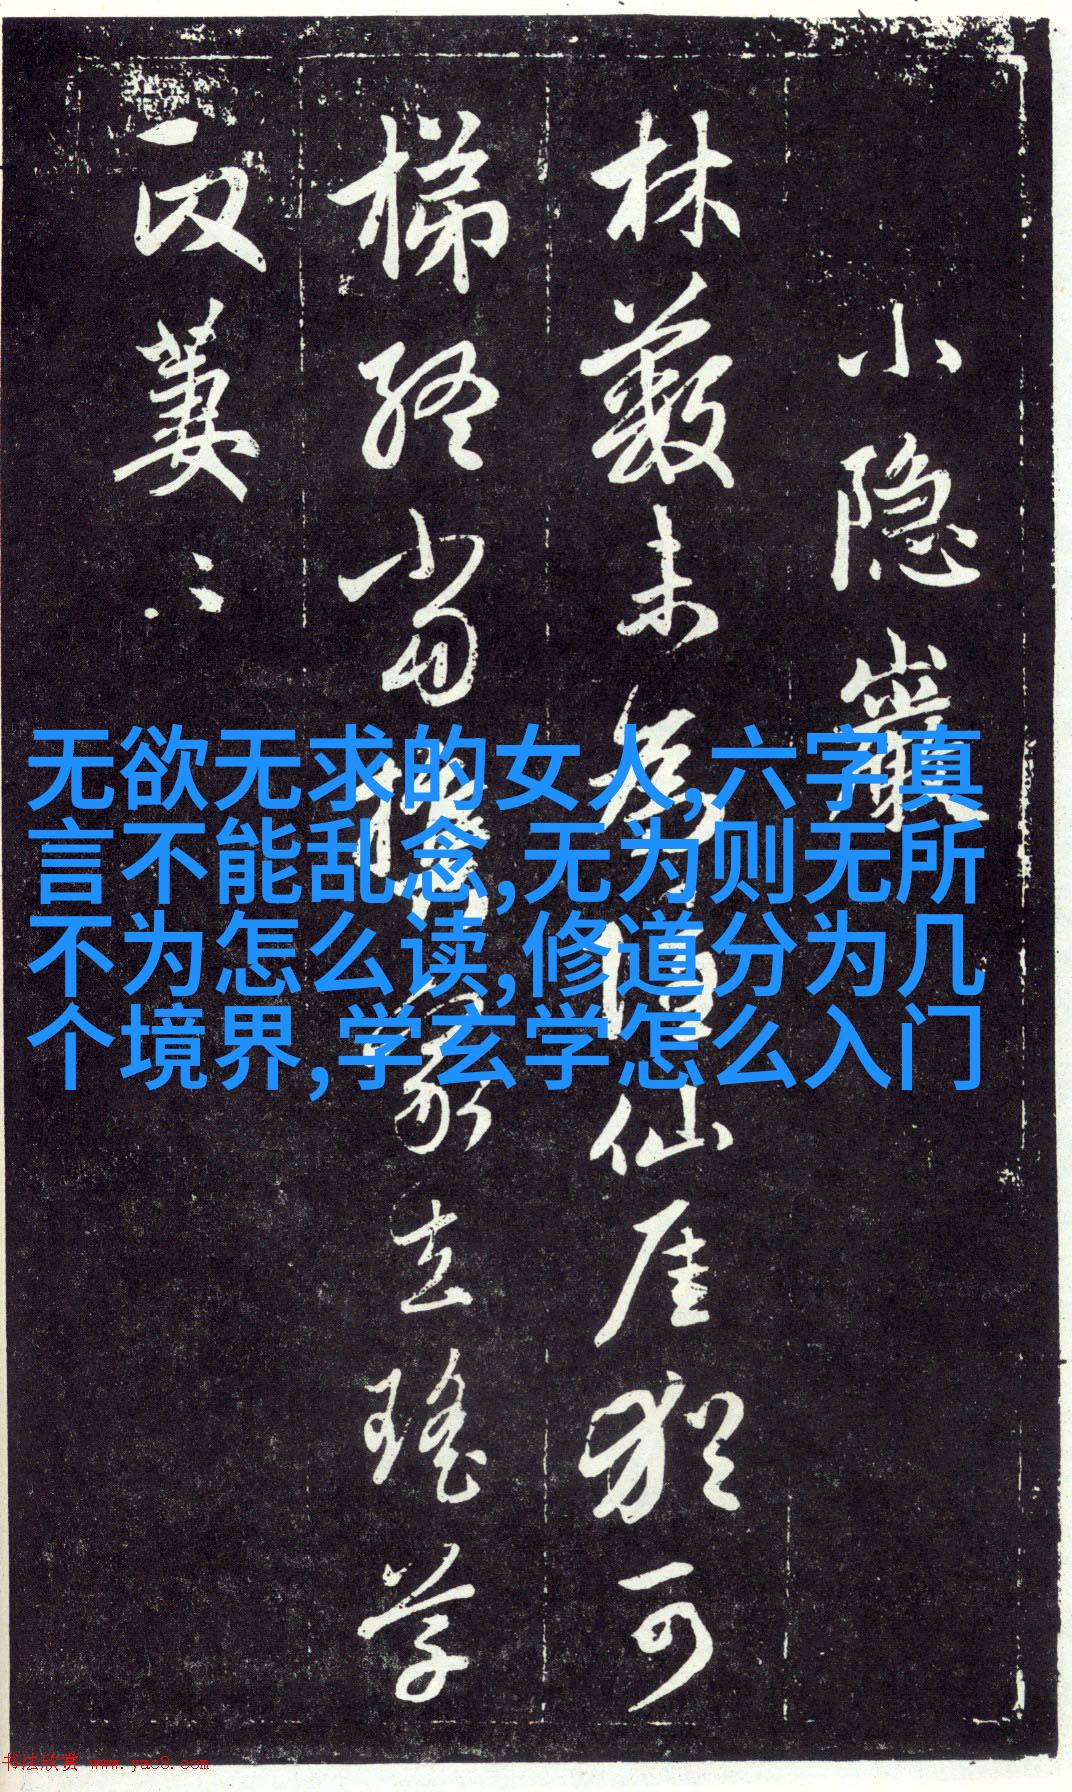 小隐巖
林薮未為隐仙厓猶可
梯終當攜家去瑤草
政萋〻
无欲无求的女人,六字真
言不能乱念,无为则无所
不为怎么读,修道分为几
个境界,学玄学怎么入门
书法欣赏 www.yac8.com